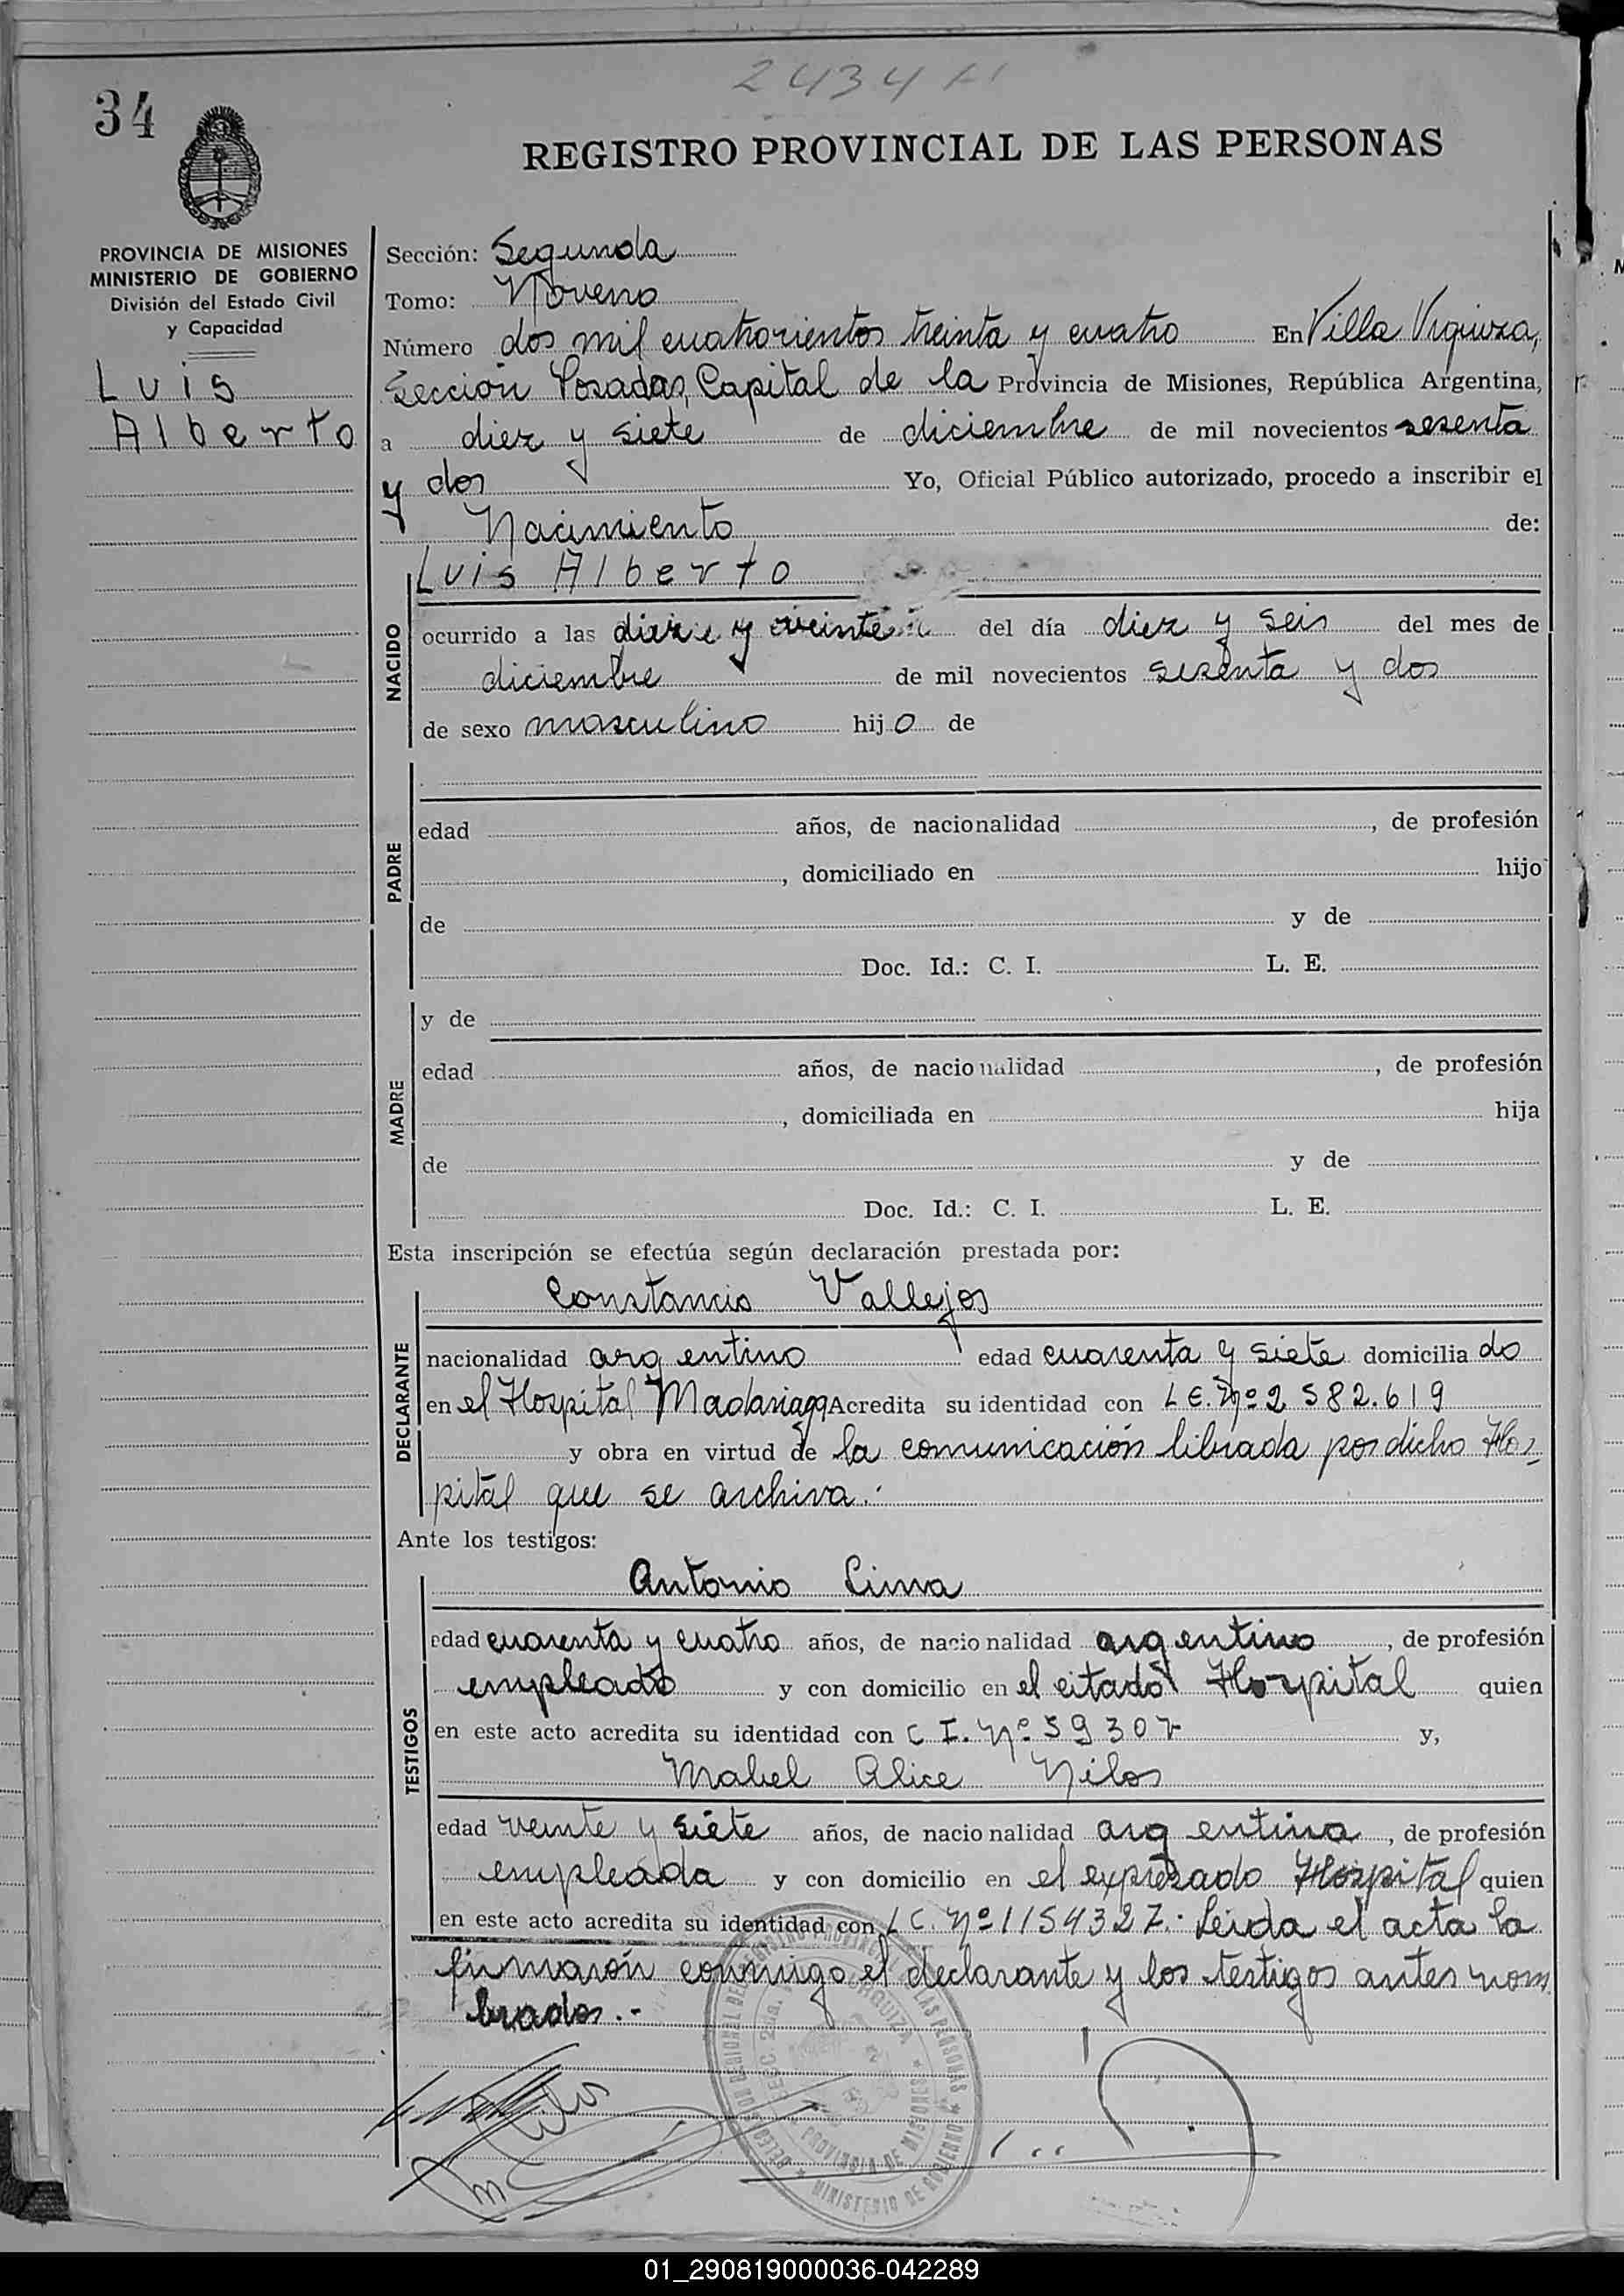 2434
34
REGISTRO PROVINCIAL DE LAS PERSONAS
PROVINCIA DE MISIONES
MINISTERIO DE GOBIERNO
División del Estado Civil
y Capacidad
Luis
Alberto
Sección: Segunda
Tomo: Noveno
Número dos mil cuatrocientos treinta y cuatro En Villa Urquiza,
Sección Posadas, Capital de la Provincia de Misiones, República Argentina,
a diez y siete de diciembre de mil novecientos sesenta
y dos Yo, Oficial Público autorizado, procedo a inscribir el
Nacimiento de:
NACIDO
Luis Alberto
ocurrido a las y veinte del día diez y seis del mes de
diciembre de mil novecientos sesenta y dos
de sexo masculino hijo de
PADRE
edad años, de nacionalidad , de profesión
, domiciliado en hijo
de y de
Doc. Id.: C. I. L. E.
MADRE
y de
edad años, de nacionalidad , de profesión
, domiciliada en hija
de y de
Doc. Id.: C. I. L. E.
Esta inscripción se efectúa según declaración prestada por:
DECLARANTE
Constancio Vallejos
nacionalidad argentino edad cuarenta y siete domiciliado
en el Hospital Madariaga Acredita su identidad con L.E. Nº 2.582.619
y obra en virtud de la comunicación librada por dicho Hos-
pital que se archiva.-
Ante los testigos:
TESTIGOS
Antonio Lima
edad cuarenta y cuatro años, de nacionalidad argentino, de profesión
empleado y con domicilio en el citado Hospital quien
en este acto acredita su identidad con C.I. Nº 59307 y,
Mabel Alice Nilos
edad veinte y siete años, de nacionalidad argentina, de profesión
empleada y con domicilio en el expresado Hospital quien
en este acto acredita su identidad con L.C. Nº 1154327.- Leída el acta la
firmaron conmigo el declarante y los testigos antes nom
brados.-
PROVINCIA DE MISIONES
MINISTERIO DE GOBIERNO
01_290819000036-042289